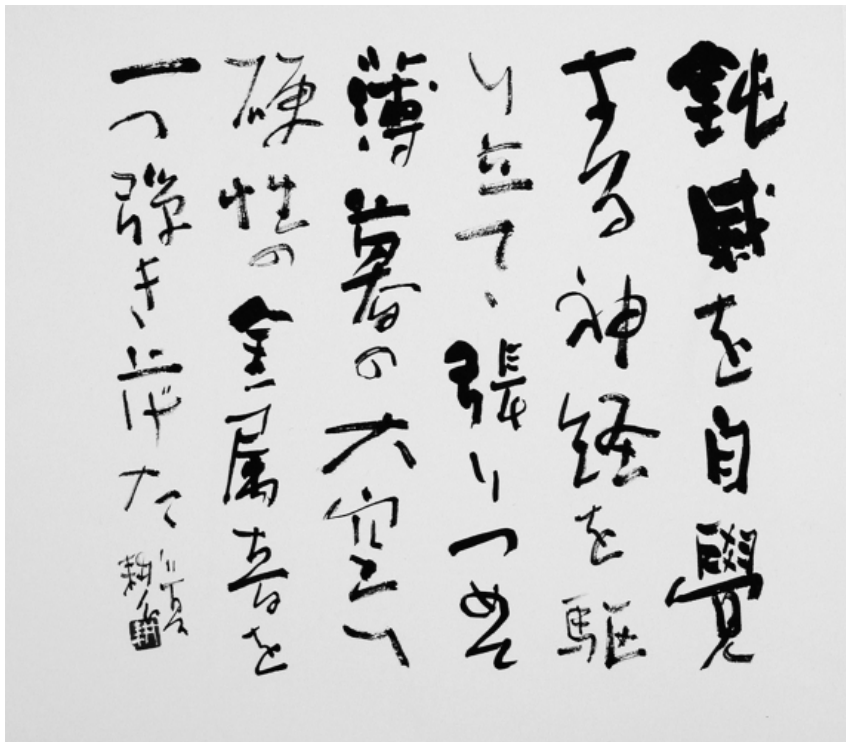 鈍感を自覺
する神経を駆
り立て、張りつめて
薄暮の大空へ
硬性の金属音を
一つ弾き上げた